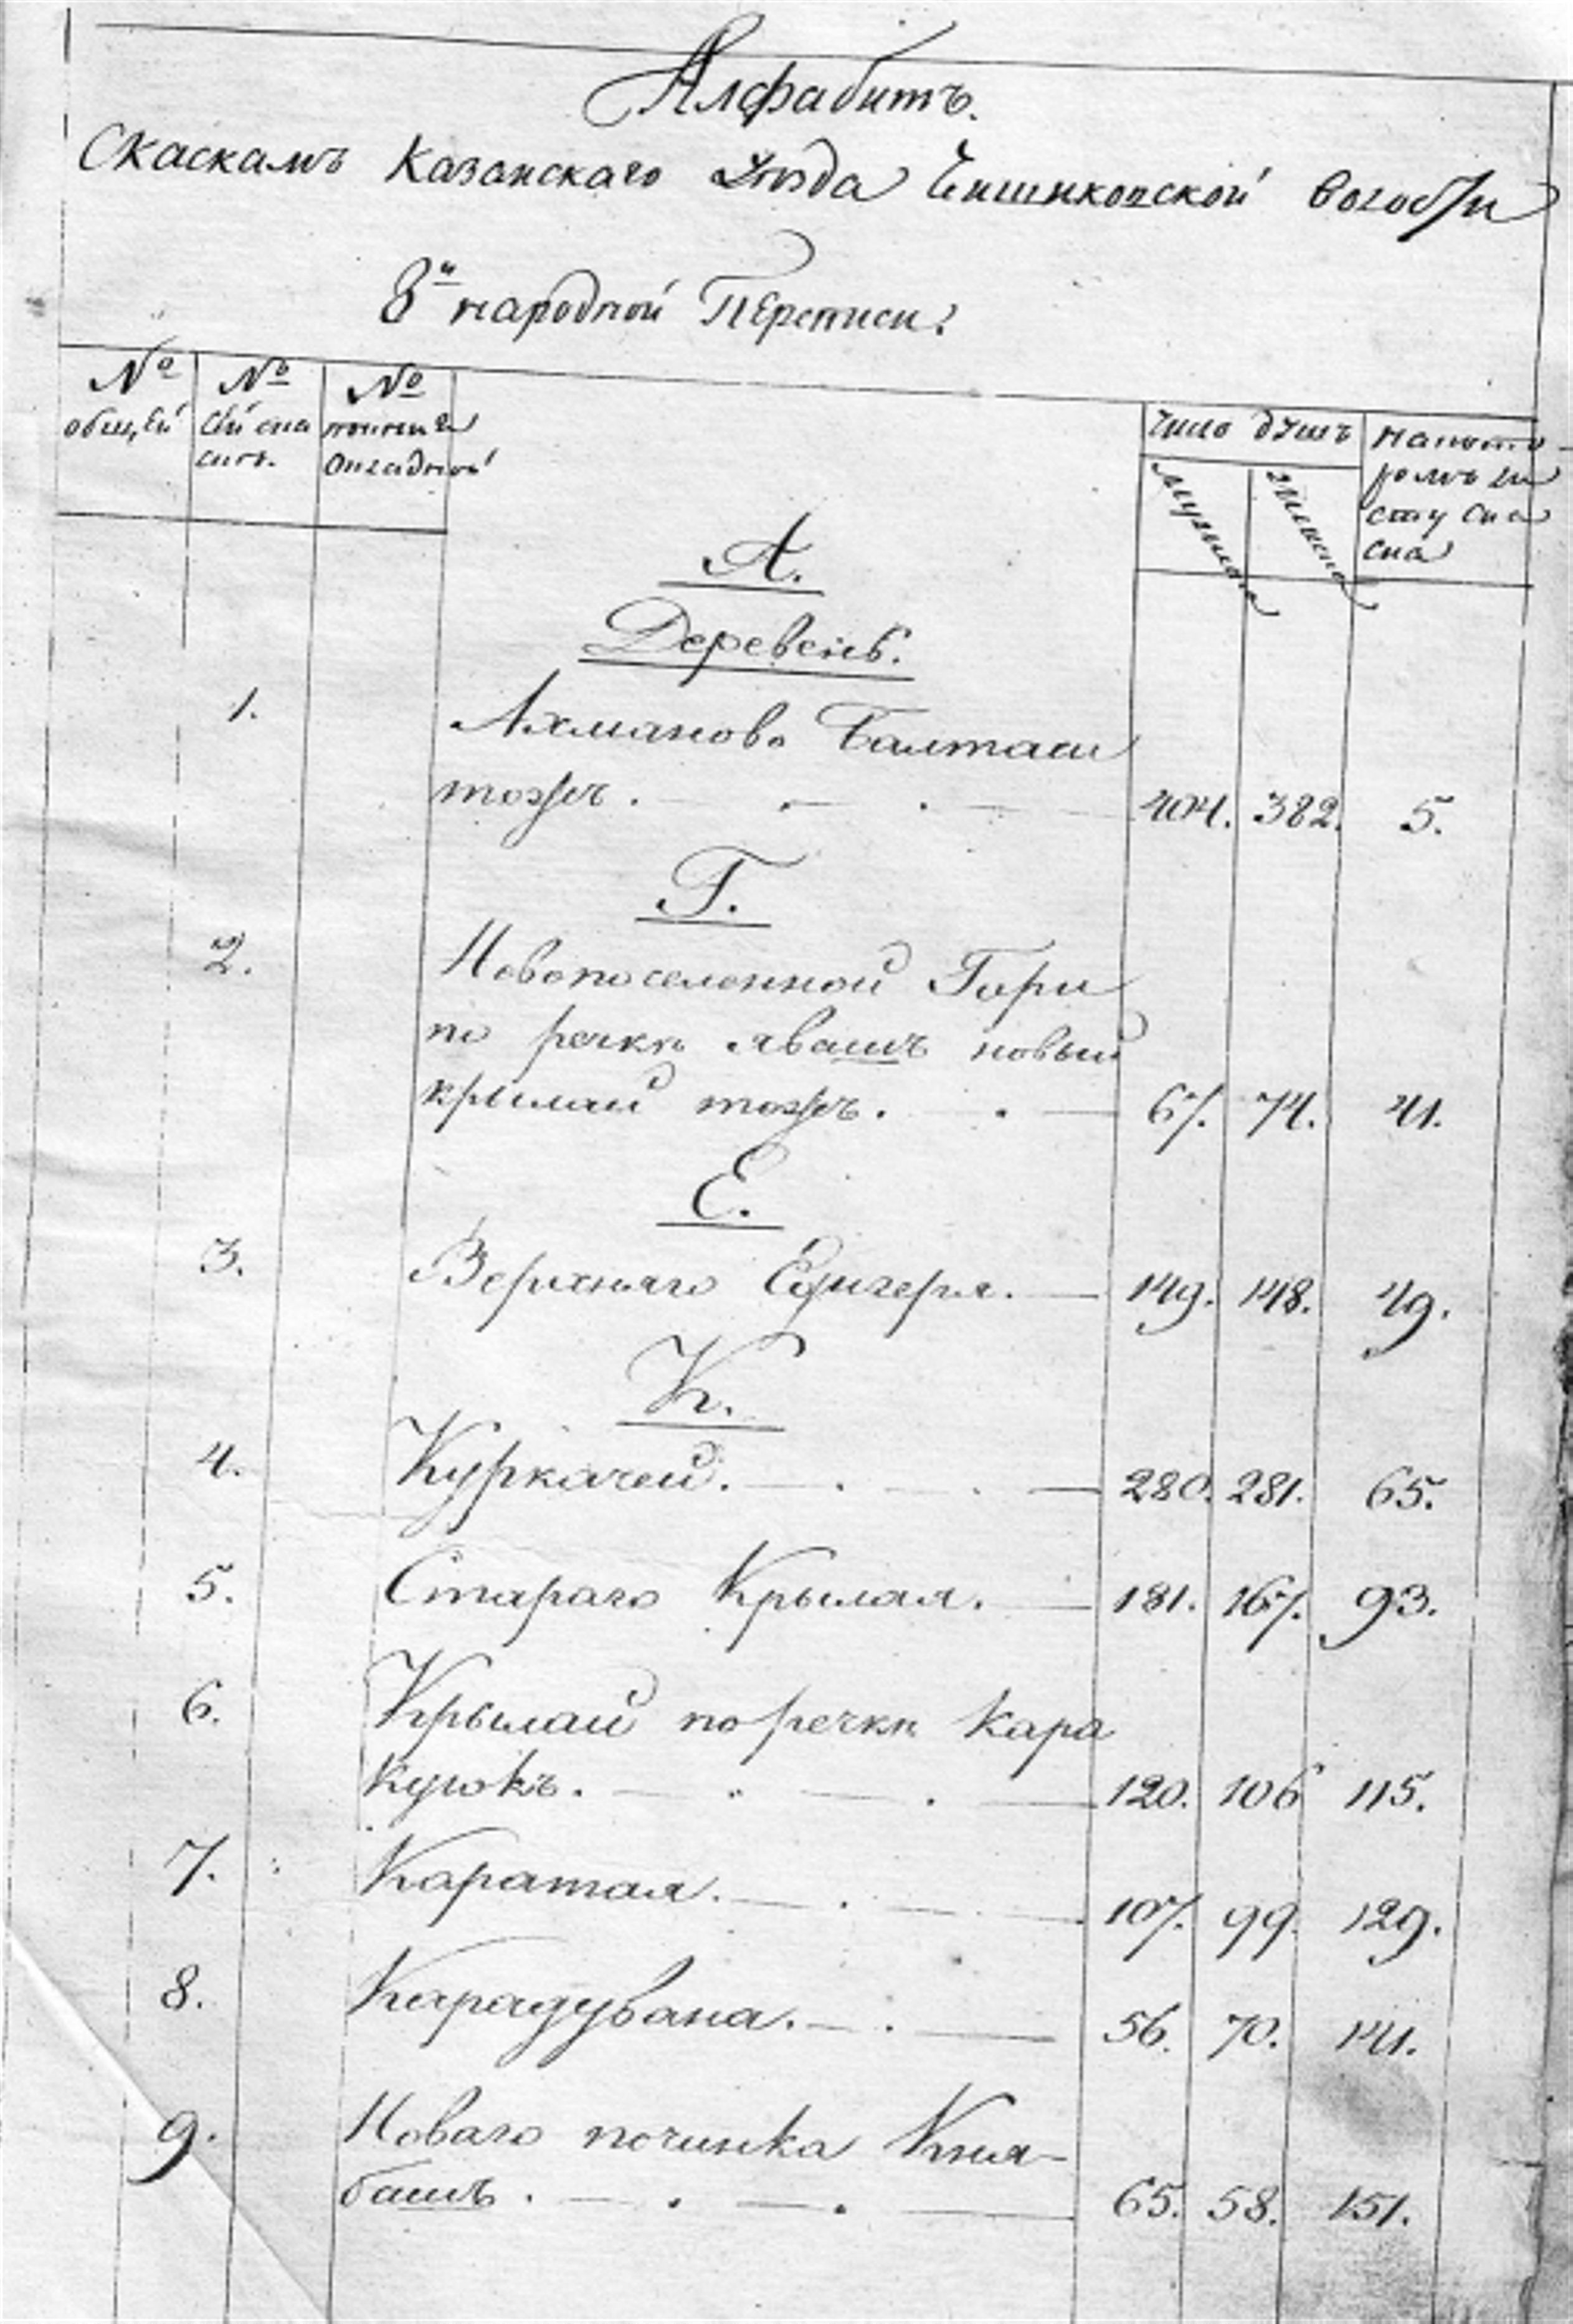 Алфабитъ.
Скаскамъ Казанскаго уѣзда волости
8й народной Переписи.
№ № №
общей
число душъ на кото-
ромъ ли
сту спи
ска
мужеска женска
А.
Деревень.
1. Ахманово Балтаси
тожъ. 404. 382. 5.
Г.
2. Новопоселенной Гари
по речкѣ явашъ новый
крылай тожъ. 67. 74. 41.
Е.
3. Верхняго 149. 148. 49.
К.
4. Куркачей. 280. 281. 65.
5. Стараго Крылая. 181. 167. 93.
6. Крылай по речкѣ Кара
Кугокъ. 120. 106 115.
7. Каратая. 107. 99. 129.
8. Карадувана. 56. 70. 141.
9. Новаго починка Кня-
башъ. 65. 58. 151.